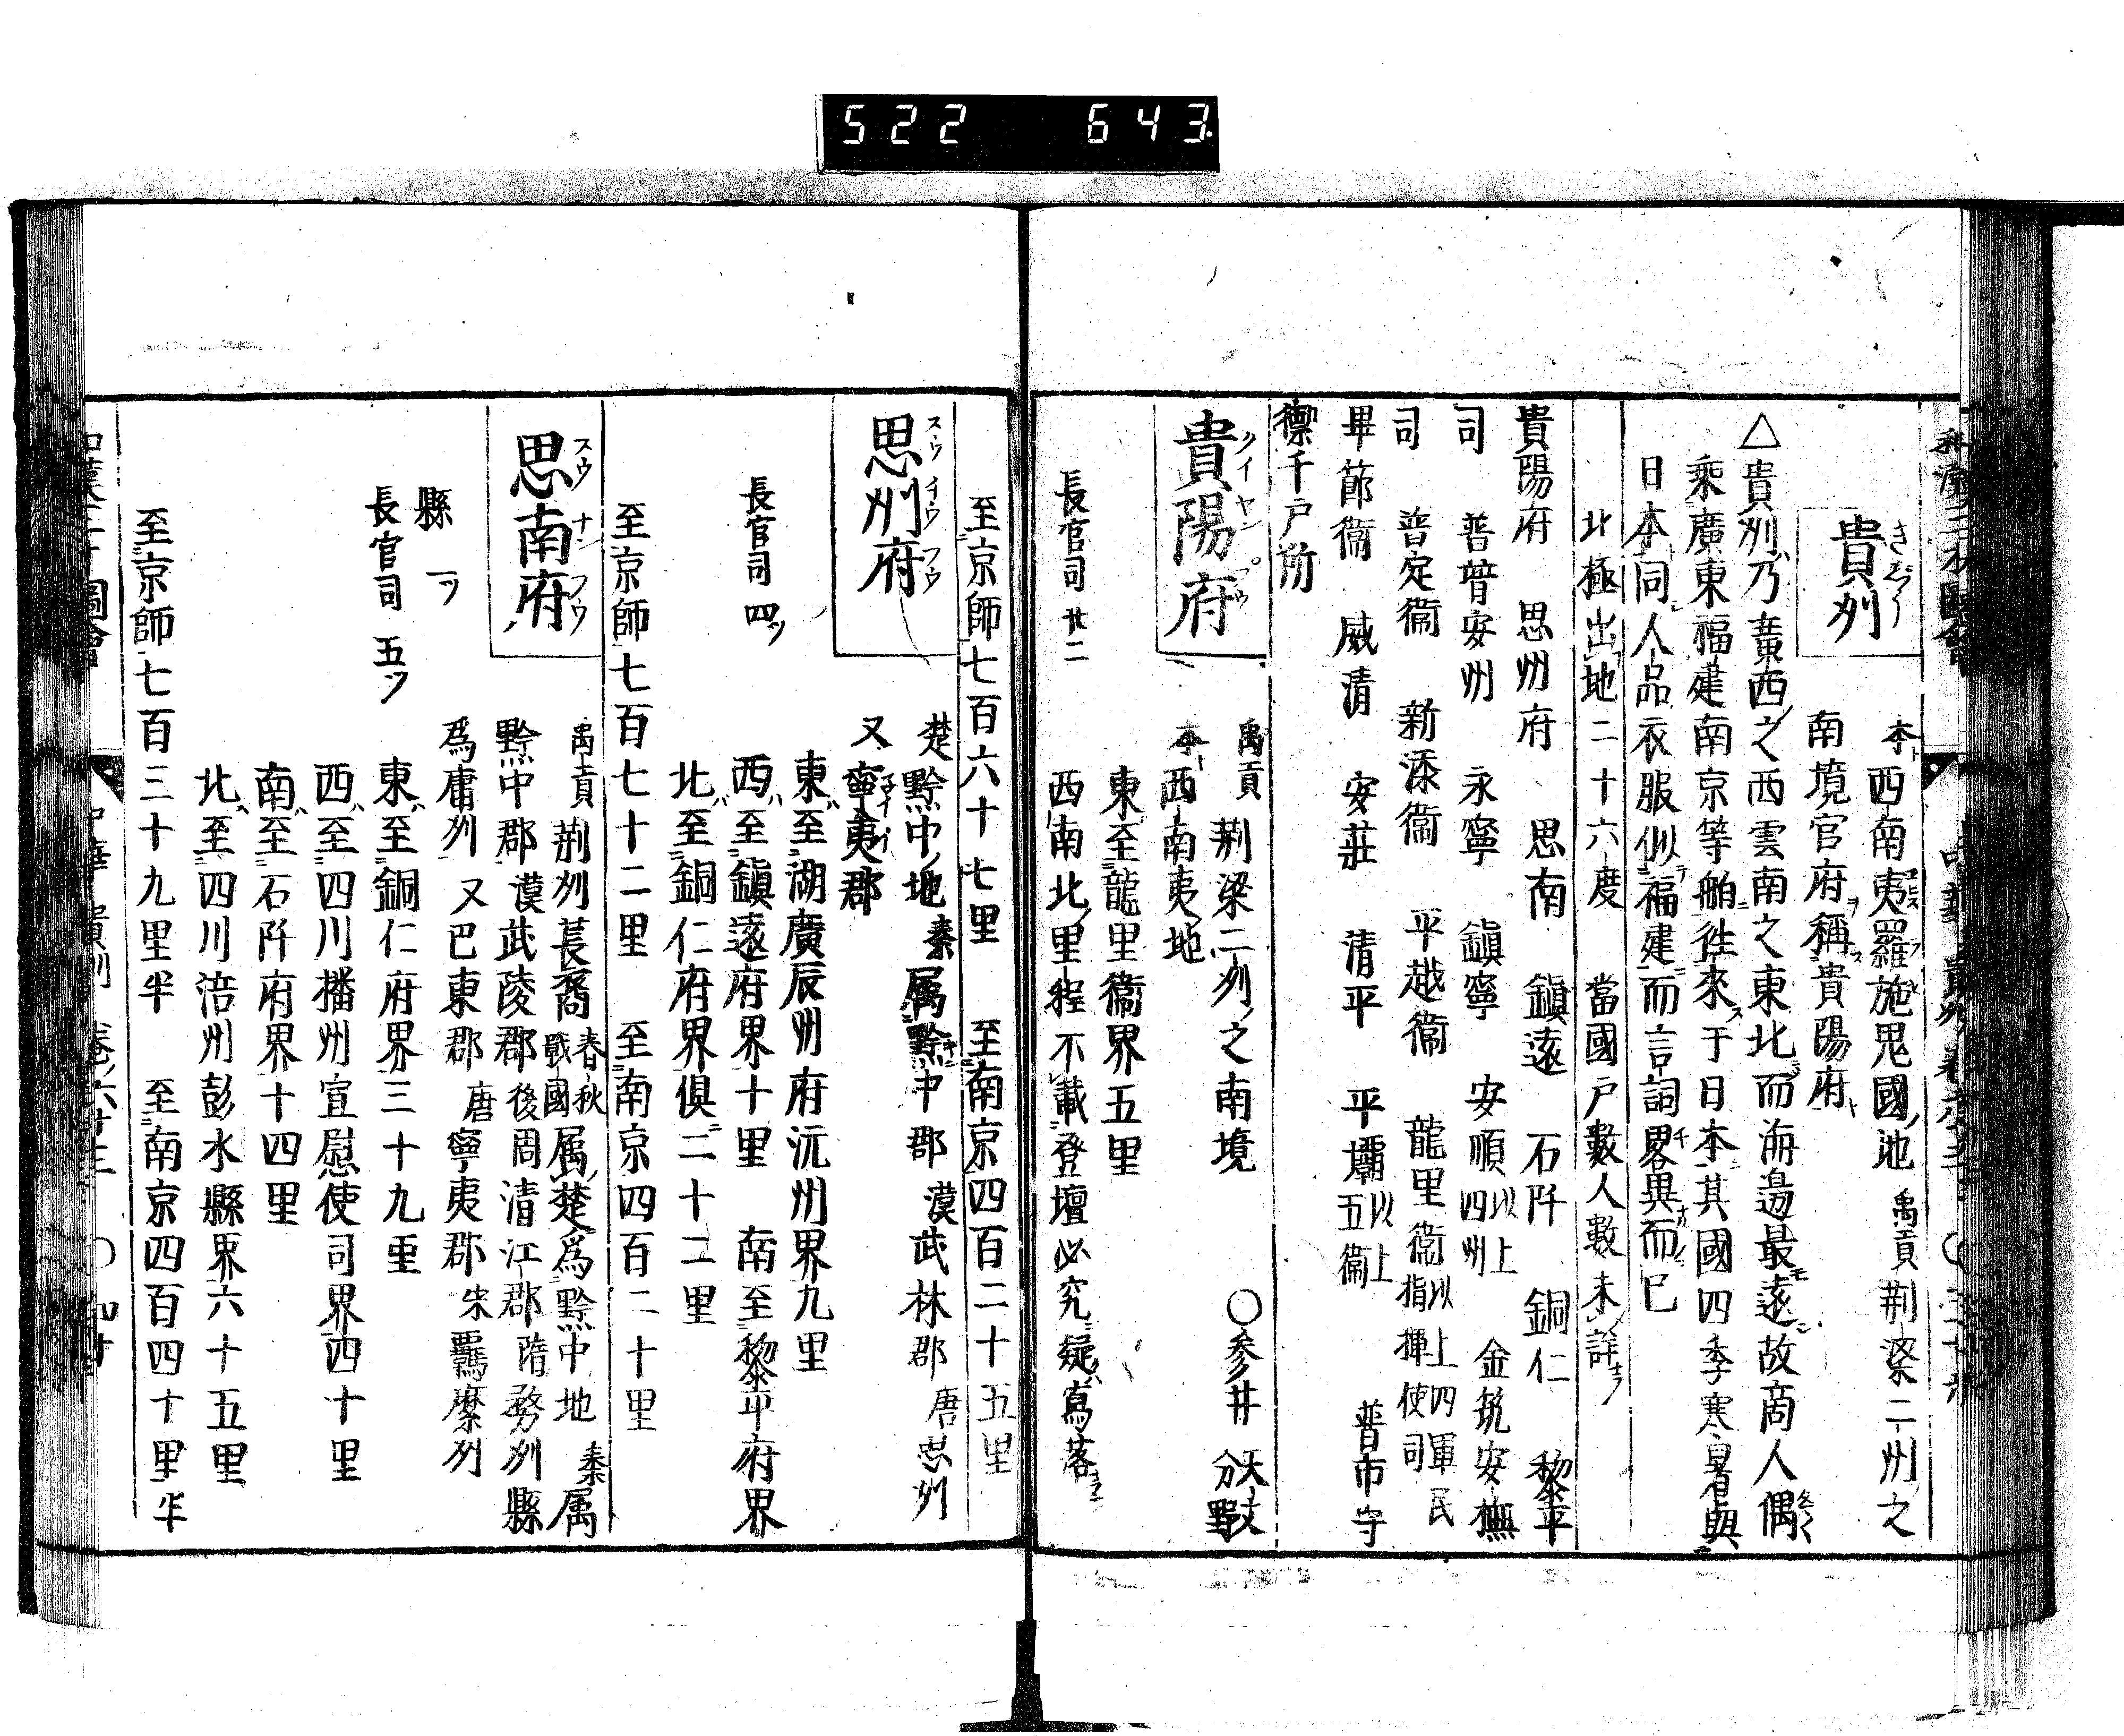 522 643
貴州
本西南夷羅施鬼國地 禹貢荆梁二州之
南境官府稱貴陽府
△貴州乃廣西之西雲南之東北而海邉最遠故商人偶
乘廣東福建南京等舶徃來于日本其國四季寒暑與
日本同人品衣服似福建而言詞畧異而已
北極出地二十六度 當國戸數人數未詳
貴陽府 思州府 思南 鎭遠 石阡 銅仁 黎平
司 普普安州 永寧 鎭寧 安順以上四州 金筑安撫
司 普定衞 新添衞 平越衞 龍里衞以上四軍民指揮使司
畢節衞 威清 安莊 清平 平壩以上五衞 普市守
禦千戸所
貴陽府 クイヤンフウ
禹貢荆梁二州之南境 ○參井 天文分野
本西南夷地
東至龍里衞界五里
長官司 廿二 西南北里程不載登壇必究疑寫落
至京師七百六十七里 至南京四百二十五里
思州府 スウイウフウ
楚黔中地 秦属黔中郡 漢武林郡 唐思州
又寧夷郡
東至湖廣辰州府沅州界九里
長官司 四ツ 西至鎭遠府界十里 南至黎平府界
北至銅仁府界俱二十二里
至京師七百七十二里 至南京四百二十里
思南府 スウナンフウ
禹貢荆州萇裔 春秋戰國属楚爲黔中地 秦属
黔中郡 漢武陵郡 後周清江郡 隋務州縣
爲庸州 又巴東郡 唐寧夷郡 宋羈縻州
縣 一ツ 東至銅仁府界三十九里
長官司 五ツ 西至四川播州宣慰使司界四十里
南至石阡府界十四里
北至四川涪州彭水縣界六十五里
至京師七百三十九里半 至南京四百四十里半